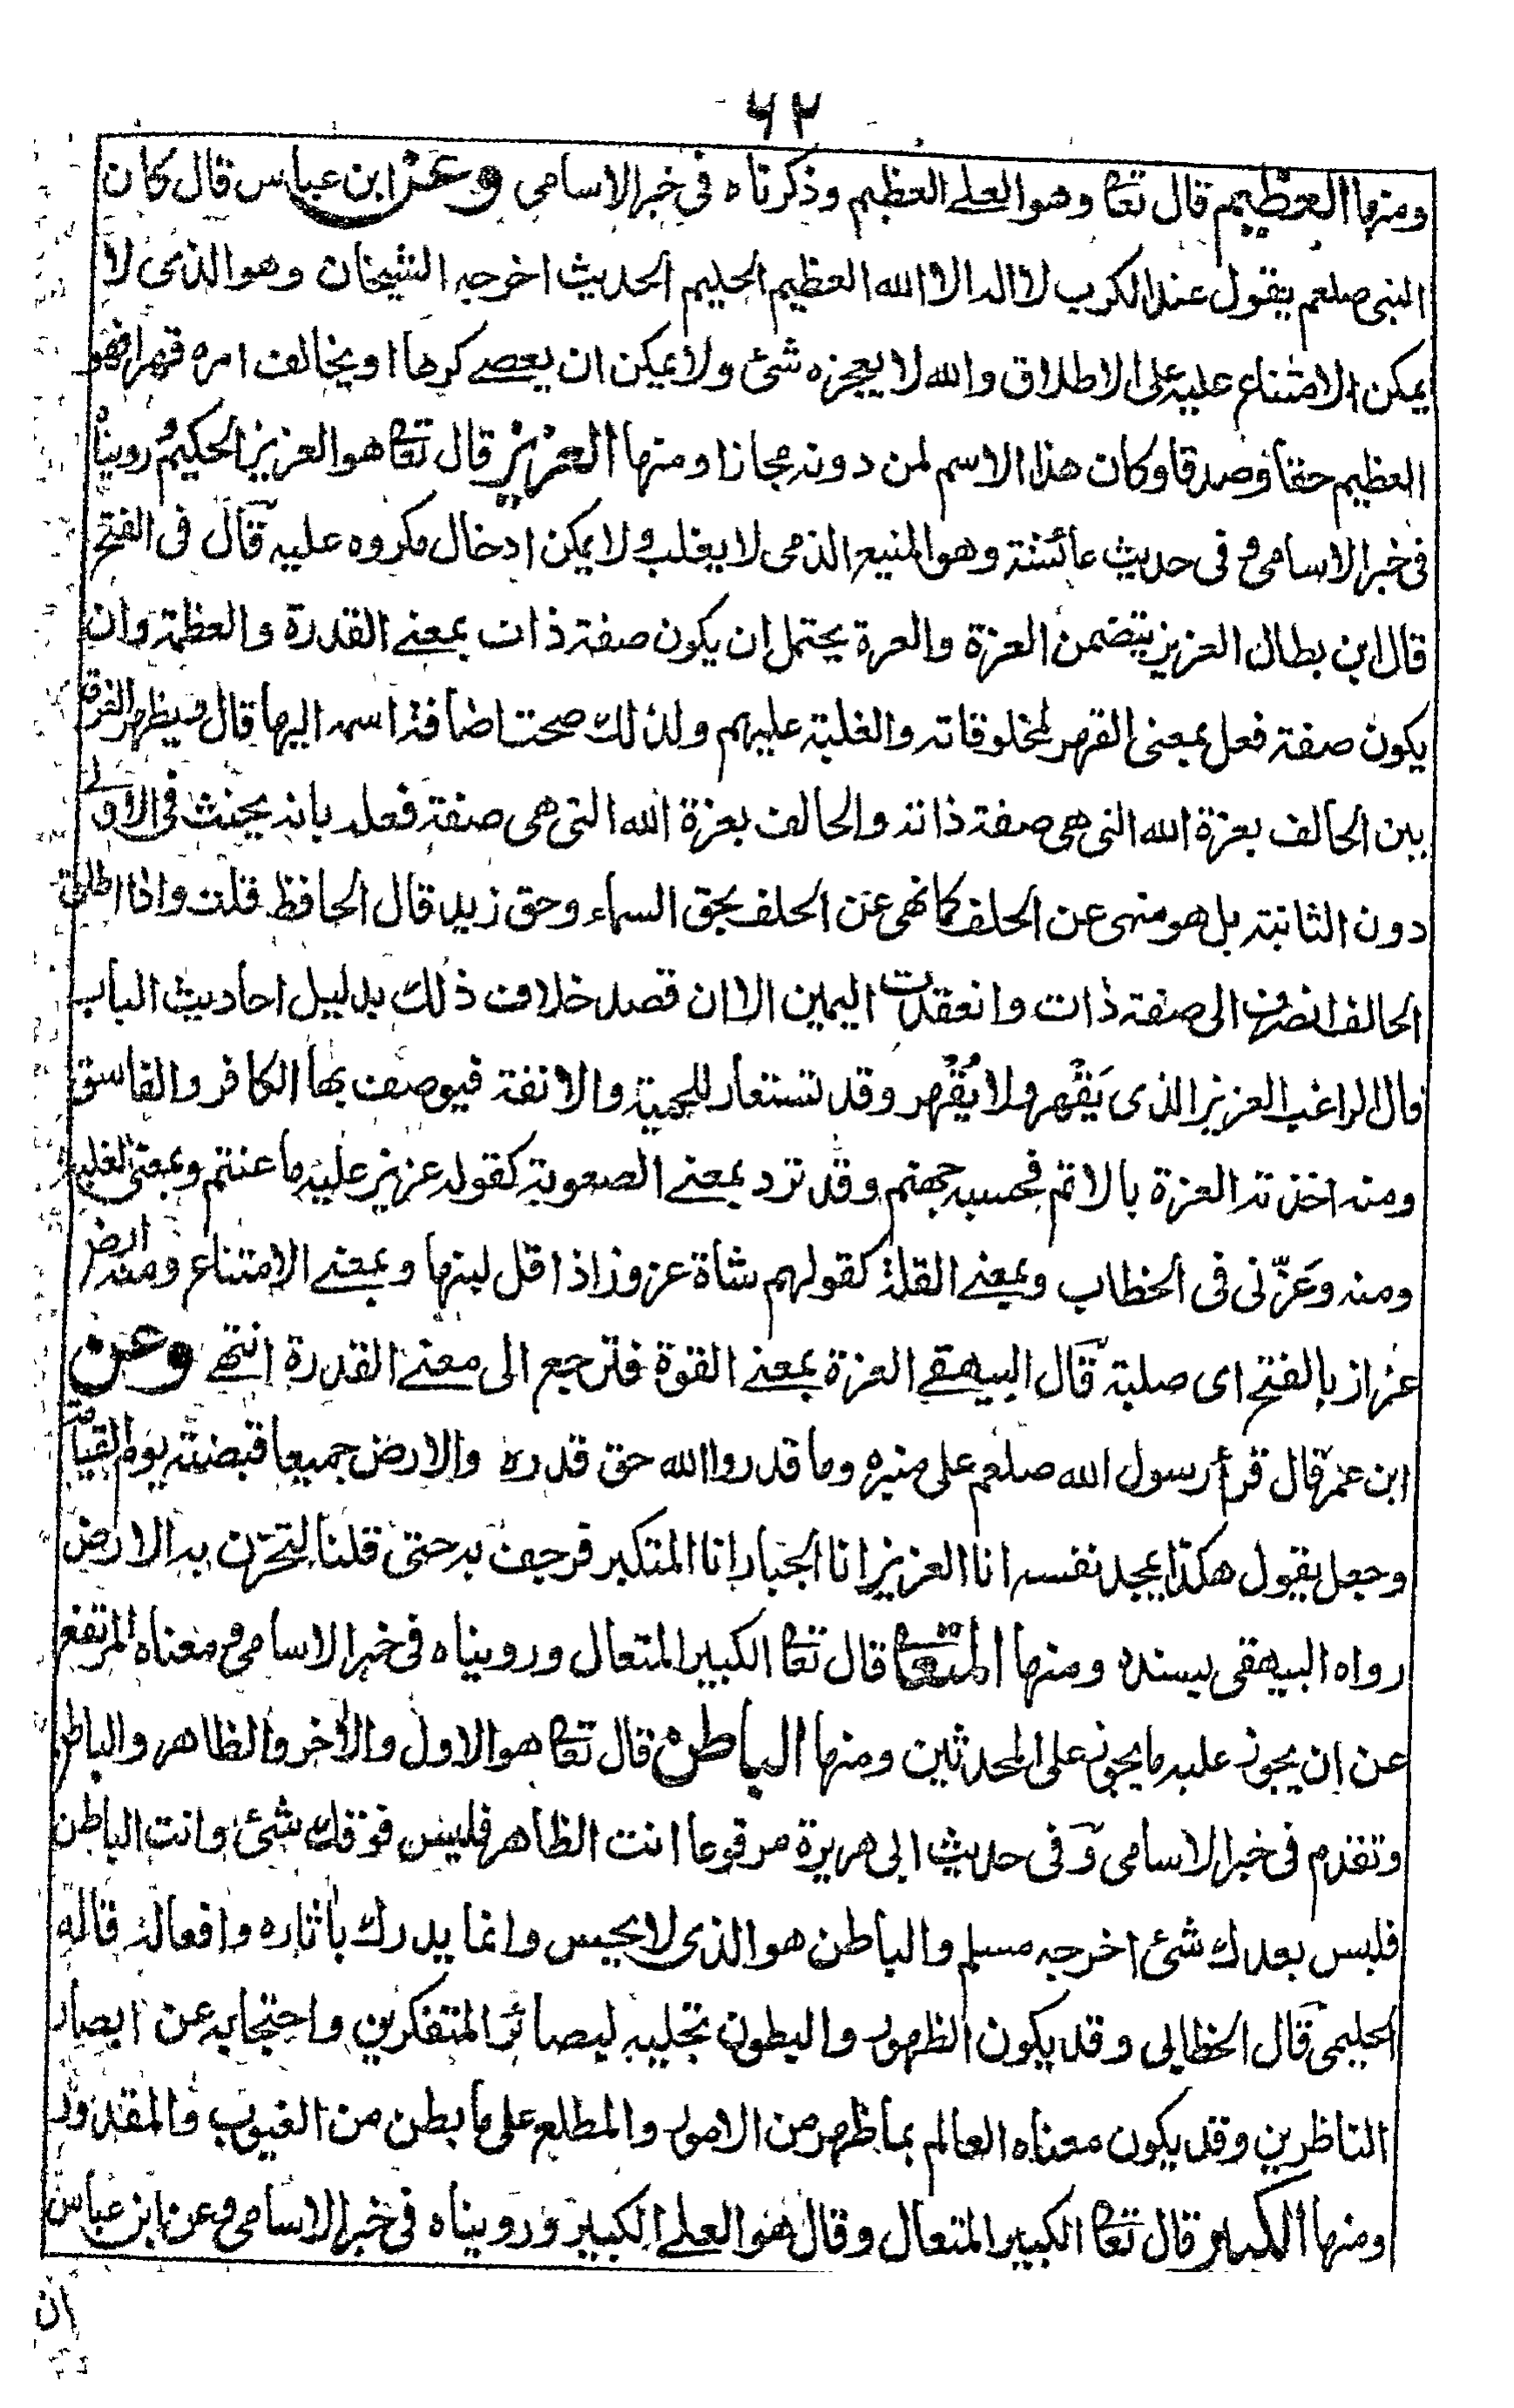 ٦٢
ومنها العظيم قال تعا وهو العلے العظيم وذكرناه فى خبر الاسامى وعن ابن عباس قال كان
النبى صلعم يقول عند الكرب لا اله الا الله العظيم الحليم الحديث اخرجه الشيخان وهو الذى لا
يمكن الامتناع عليه على الاطلاق والله لا يعجزه شئ ولا يمكن ان يعصے كرها او يخالف امره قهرا فهو
العظيم حقا وصدقا وكان هذا الاسم لمن دونه مجازا ومنها العزيز قال تعا هو العزيز الحكيم روينا
فى خبر الاسامى و فى حديث عائشة وهو المنيع الذى لا يغلب ولا يمكن ادخال مكروه عليه قال فى الفتح
قال ابن بطال العزيز يتضمن العزة والعزة يحتمل ان يكون صفة ذات بمعنے القدرة والعظمة وان
يكون صفة فعل بمعنى القهر لمخلوقاته والغلبة عليهم ولذلك صحت اضافة اسمه اليها قال ويظهر الفرق
بين الحالف بعزة الله التى هى صفة ذاته والحالف بعزة الله التى هى صفة فعله بانه يحنث فى الاولے
دون الثانية بل هو منهى عن الحلف كما نهى عن الحلف بحق السماء وحق زيد قال الحافظ قلت واذا اطلق
الحالف انصرف الى صفة ذات وانعقدت اليمين الا ان قصد خلاف ذلك بدليل احاديث الباب
قال الراغب العزيز الذى يَقْهر ولا يُقْهر وقد تستعار للحمية والانفة فيوصف بها الكافر والفاسق
ومنه اخذته العزة بالاثم فحسبه جهنم وقد ترد بمعنے الصعوبة كقوله عزيز عليه ما عنتم وبمعنى الغلبة
ومنه وَعَزّنى فى الخطاب وبمعنے القلة كقولهم شاة عزوز اذا قل لبنها وبمعنے الامتناع ومنه ارض
عزاز بالفتح اى صلبة قال البيهقے العزة بمعنے القوة فترجع الى معنے القدرة انتهے وعن
ابن عمر قال قرأ رسول الله صلعم على منبره وما قدروا الله حق قدره والارض جميعا قبضته يوم القيامة
وجعل يقول هكذا يمجد نفسه انا العزيز انا الجبار انا المتكبر فرجف به حتى قلنا لتخرن به الارض
رواه البيهقى بسنده ومنها المتعا قال تعا الكبير المتعال وروينا ه فى خبر الاسامى و معناه المرتفع
عن ان يجوز عليه ما يجوز على المحدثين ومنها الباطن قال تعا هو الاول والأخر والظاهر والباطن
وتقدم فى خبر الاسامى وفى حديث ابى هريرة مرفوعا انت الظاهر فليس فوقك شئ وانت الباطن
فليس بعدك شئ اخرجه مسلم والباطن هو الذى لا يحس وانما يدرك بأثاره وافعاله قاله
الحليمى قال الخطابى وقد يكون الظهور والبطون تجليه لبصائر المتفكرين واحتجابه عن ابصار
الناظرين وقد يكون معناه العالم بما ظهر من الامور والمطلع على ما بطن من الغيوب والمقدور
ومنها الكبير قال تعا الكبير المتعال وقال هو العلے الكبير وروينا ه فى خبر الاسامى وعن ابن عباس
ان